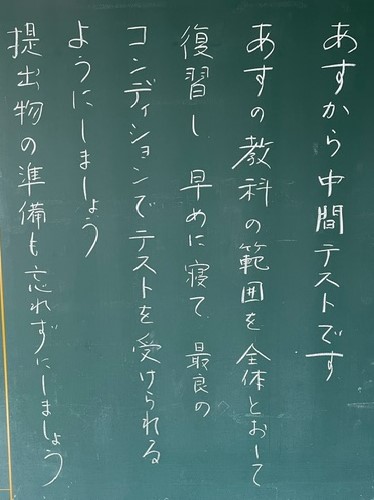 あすから中間テストです
あすの教科の範囲を全体とおして
復習し 早めに寝て 最良の
コンディションでテストを受けられる
ようにしましょう
提出物の準備も忘れずにしましょう